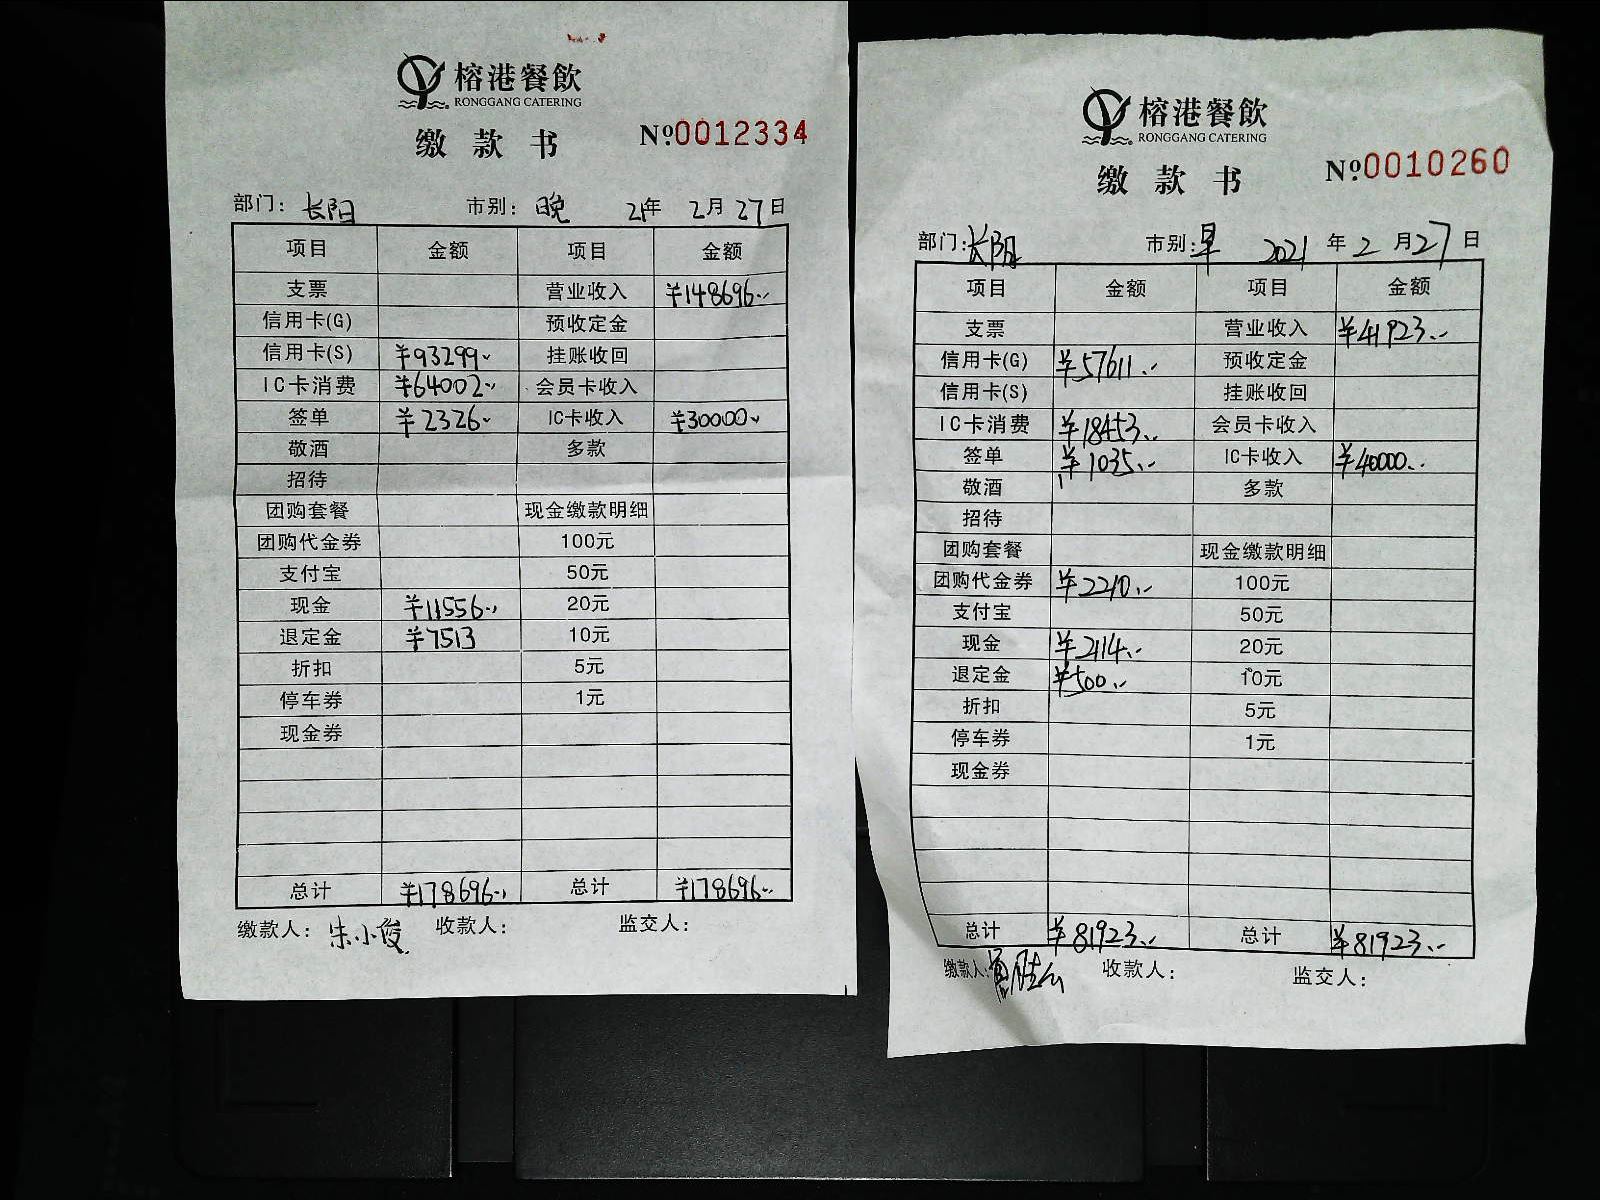 榕港餐飲
RONGGANG CATERING
缴款书 №0012334
部门: 长阳 市别: 晚 21年 2月 27日
项目 金额 项目 金额
支票 营业收入 ¥148696..
信用卡(G) 预收定金
信用卡(S) ¥93299.. 挂账收回
IC卡消费 ¥64002.. 会员卡收入
签单 ¥2326.. IC卡收入 ¥30000..
敬酒 多款
招待
团购套餐 现金缴款明细
团购代金券 100元
支付宝 50元
现金 ¥11556.. 20元
退定金 ¥7513 10元
折扣 5元
停车券 1元
现金券
总计 ¥178696.. 总计 ¥178696..
缴款人: 朱小俊 收款人: 监交人:
榕港餐飲
RONGGANG CATERING
缴款书 №0010260
部门: 长阳 市别: 早 2021年 2月 27日
项目 金额 项目 金额
支票 营业收入 ¥41923..
信用卡(G) ¥57611.. 预收定金
信用卡(S) 挂账收回
IC卡消费 ¥18453.. 会员卡收入
签单 ¥1035.. IC卡收入 ¥40000..
敬酒 多款
招待
团购套餐 现金缴款明细
团购代金券 ¥2210.. 100元
支付宝 50元
现金 ¥2114.. 20元
退定金 ¥500.. 10元
折扣 5元
停车券 1元
现金券
总计 ¥81923.. 总计 ¥81923..
缴款人: 收款人: 监交人: